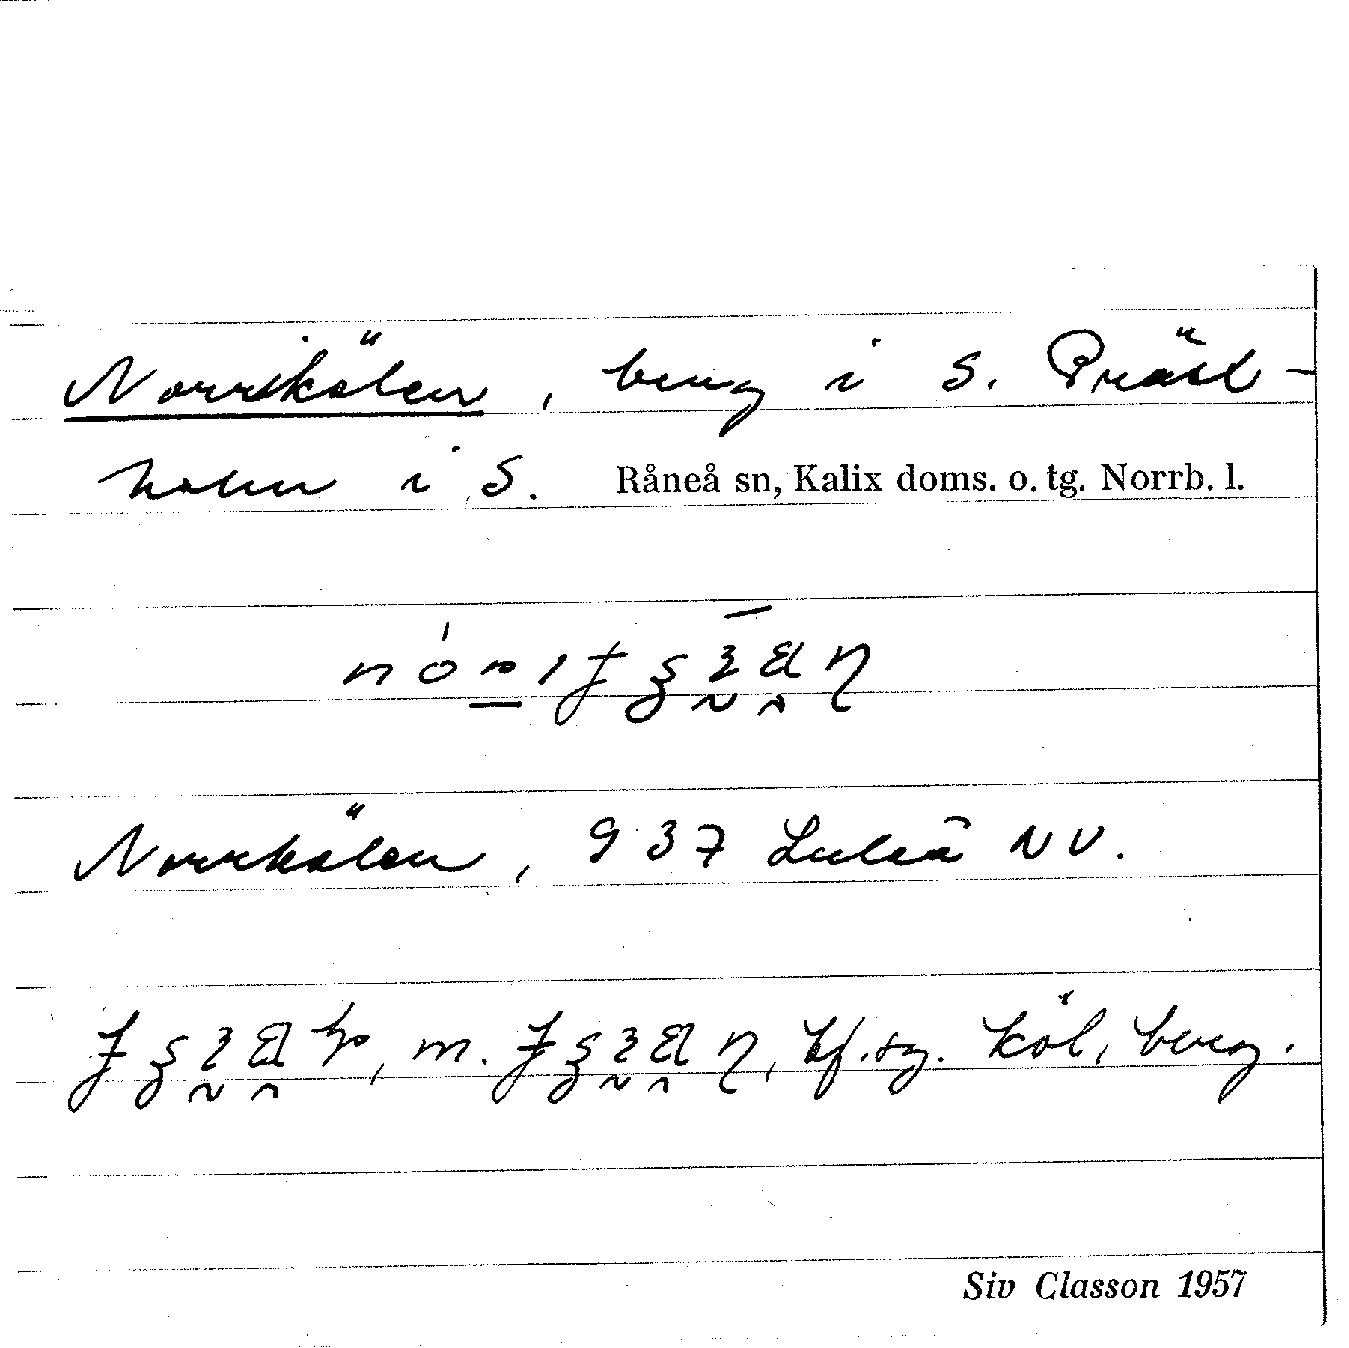 Norrikölen, berg i S. Präst-
holm i S. Råneå sn, Kalix doms. o. tg. Norrb. l.
Norrkölen, 937 Luleå NV.
m. bf. sg. köl, berg.
Siv Classon 1957